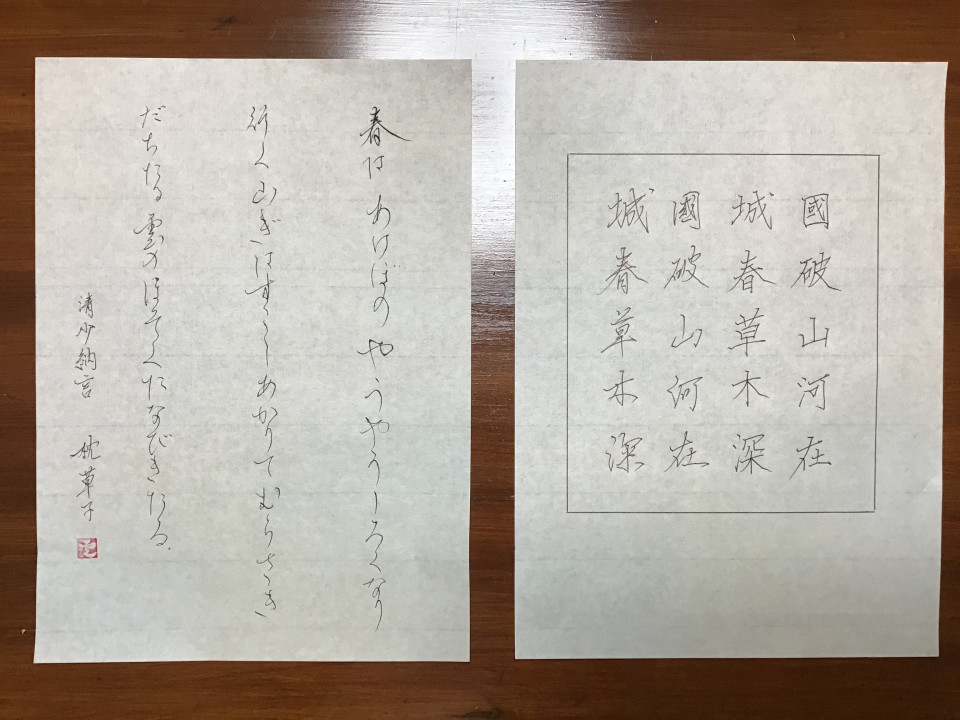 國破山河在
城春草木深
國破山河在
城春草木深
春はあけぼのやうやうしろくなり
行く山ぎはすこしあかりてむらさき
だちたる雲のほそくたなびきたる
清少納言 枕草子